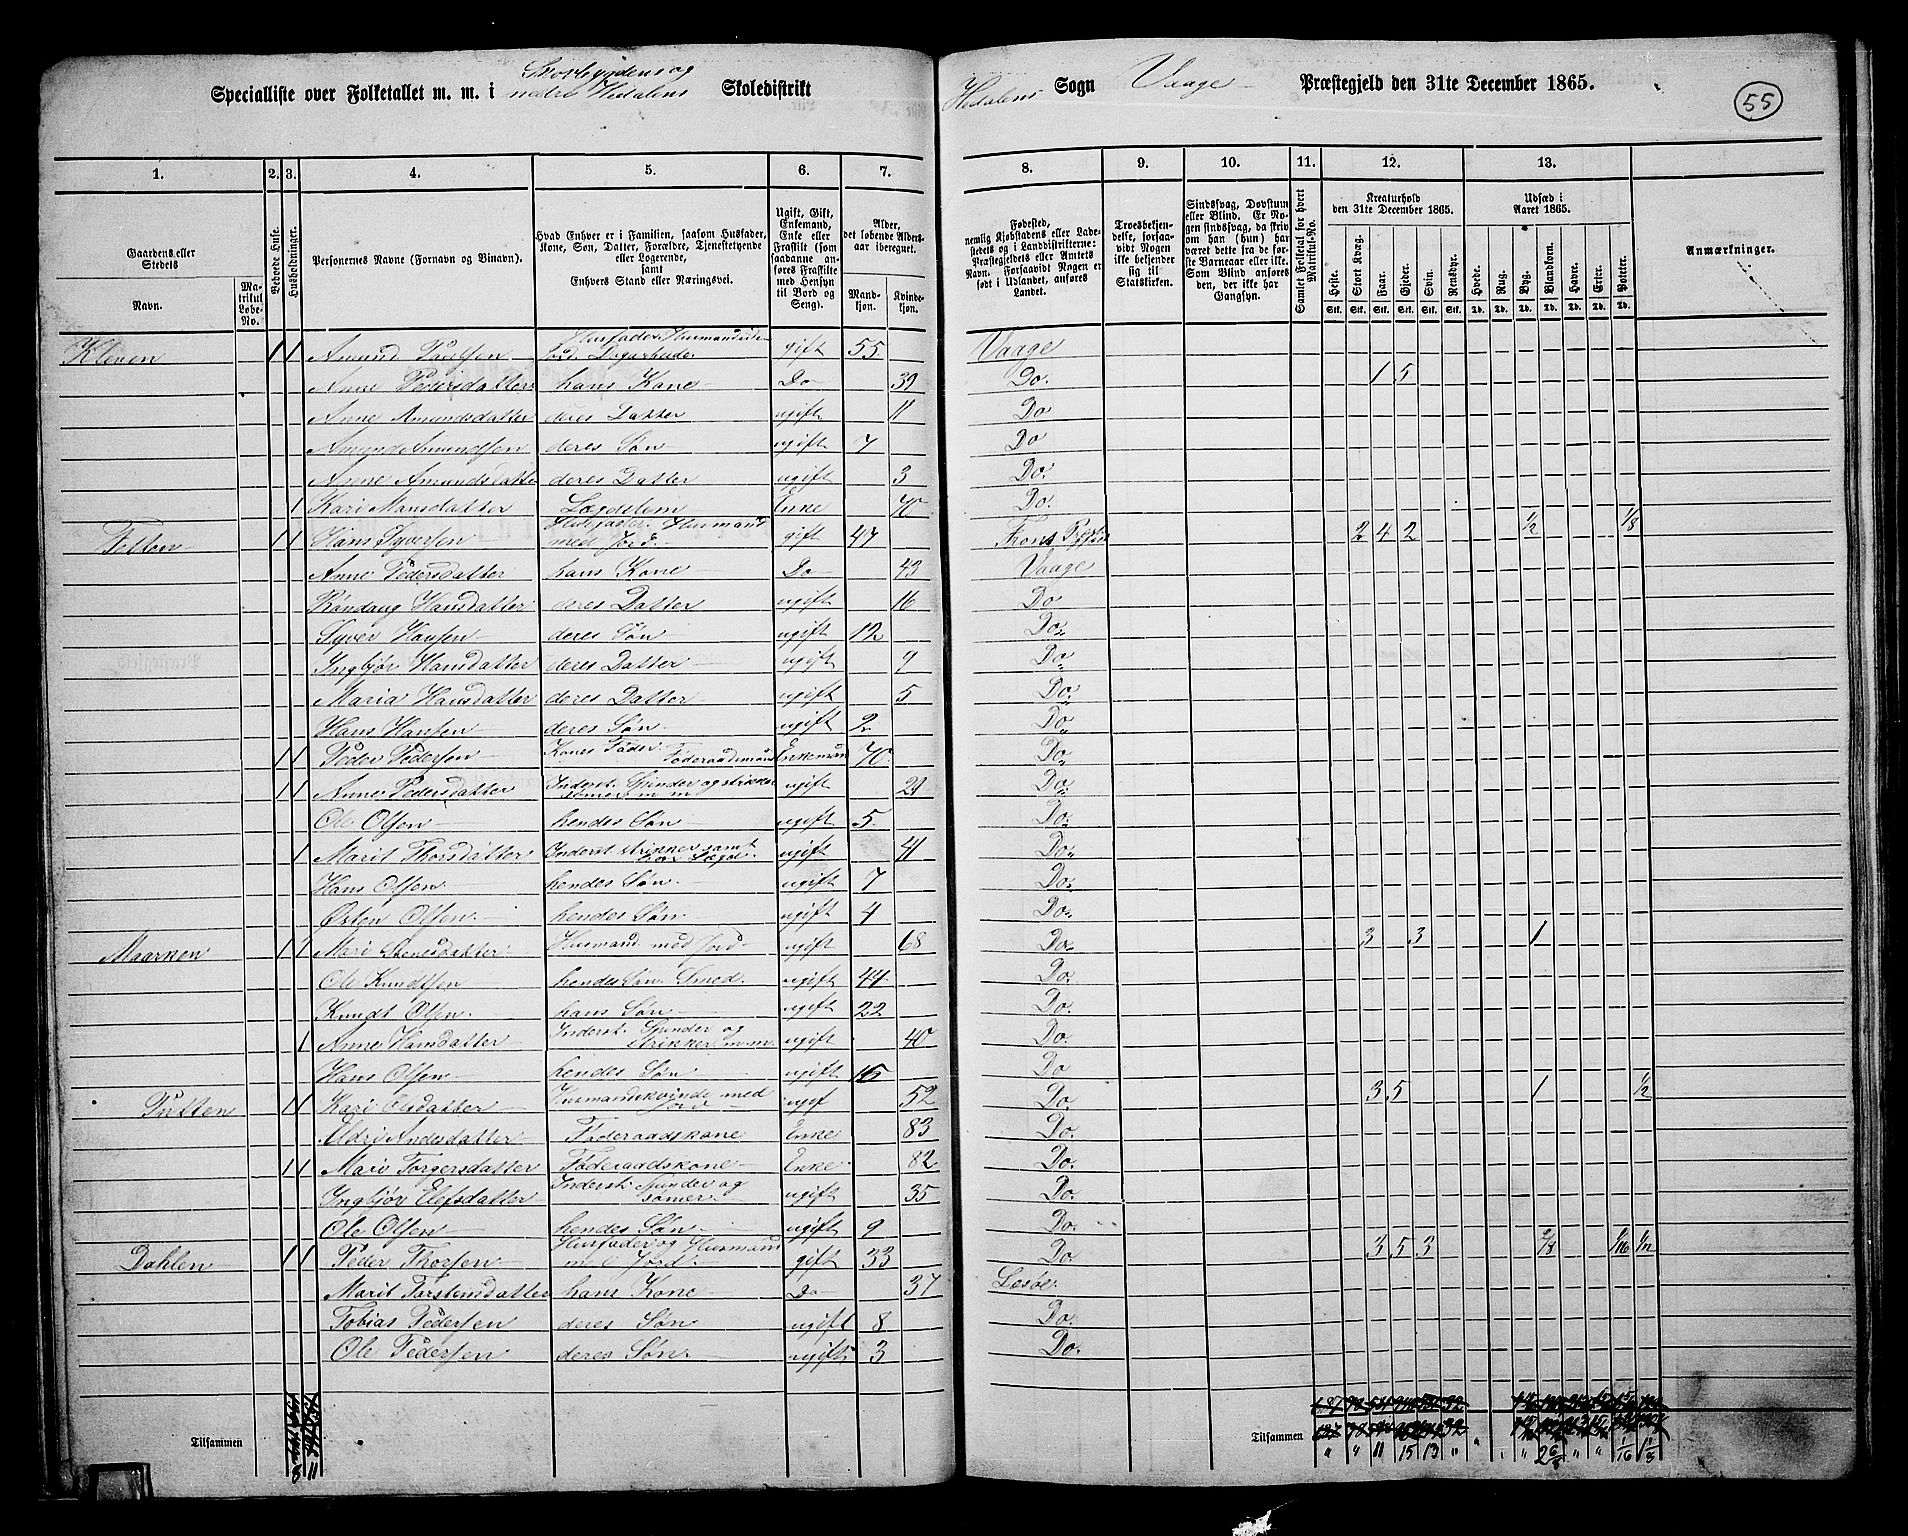 Storbygdens og
Specialliste over Folketallet m. m. i nedre Hedalens Skoledistrikt Hedalens Sogn Vaage Præstegjeld den 31te December 1865. 55
1. 2. 3. 4. 5. 6. 7. 8. 9. 10. 11. 12. 13.
Gaardens eller Stedets
Navn.
Matrikul Løbe-No.
Beboede Huse.
Husholdninger.
Personernes Navne (Fornavn og Binavn).
Hvad Enhver er i Familien, saasom Husfader, Kone, Søn, Datter, Forældre, Tjenestetyende eller Logerende,
samt
Enhvers Stand eller Næringsvei.
Ugift, Gift, Enkemand, Enke eller Fraskilt (som saadanne anføres Fraskilte med Hensyn til Bord og Seng).
Alder, det løbende Aldersaar iberegnet.
Mandkjøn. Kvindekjøn.
Fødested,
nemlig Kjøbstadens eller Ladestedets og i Landdistrikterne: Præstegjeldets eller Amtets Navn. Forsaavidt Nogen er født i Udlandet, anføres Landet.
Troesbekjendelse, forsaavidt Nogen ikke bekjender sig til Statskirken.
Sindssvag, Døvstum eller Blind. Er Nogen sindssvag, da skriv om han (hun) har været dette fra de første Barneaar eller ikke. Som Blind anføres den, der ikke har Gangsyn.
Samlet Folketal for hvert Matrikul-No.
Kreaturhold den 31te December 1865.
Heste. Stort Kvæg. Faar. Gjeder. Svin. Rensdyr.
Stk. Stk. Stk. Stk. Stk. Stk.
Udsæd i Aaret 1865.
Hvede. Rug. Byg. Blandkorn. Havre. Erter. Poteter.
Td. Td. Td. Td. Td. Td. Td.
Anmærkninger.
Kleven 1 1 Amund Poulsen Husfader Husmand uden Jord gift 55 Vaage
Anne Pedersdatter hans Kone Do 39 Do. 1 5
Anne Amundsdatter deres Datter ugift 11 Do
Amund Amundsen deres Søn ugift 7 Do
Anne Amundsdatter deres Datter ugift 3 Do.
1 Kari Hansdatter Lægdslem Enke 70 Do.
1 1 Hans Syversen Husfader Husmand med Jord gift 47 2 4 2 1/2 1/8
Anne Pedersdatter hans Kone Do 43 Vaage
Røndaug Hansdatter deres Datter ugift 16 Do
Syver Hansen deres Søn ugift 12 Do
Ingbjør Hansdatter deres Datter ugift 9 Do
Maria Hansdatter deres Datter ugift 5 Do
Hans Hansen deres Søn ugift 2 Do
1 1 Peder Pedersen Kones Fader Føderaadsmand Enkemand 70 Do
1 1 Anne Pedersdatter Inderst Spinder og strikker sømer m m ugift 29 Do
Ole Olsen hendes Søn ugift 5 Do
1 Marit Thorsdatter Inderst strikker samt ugift 41 Do
Hans Olsen hendes Søn ugift 7 Do.
Østen Olsen hendes Søn ugift 4 Do
Maarken 1 1 Mari Stenersdatter Husmand med Jord ugift 68 Do 3 3 1
Ole Knudtsen hendes Søn Smed ugift 44 Do
Knudt Olsen hans Søn ugift 22 Do
1 Anne Hansdatter Inderst. Spinder og strikker m.m. ugift 40 Do
Hans Olsen hendes Søn ugift 15 Do
Putten 1 1 Kari Olsdatter Husmandskvinde med Jord ugif 52 Do 3 5 1 1/2
Eldri Andersdatter Føderaadskone Enke 83 Do.
1 1 Mari Torgersdatter Føderaadskone Enke 82 Do.
Ingbjør Elefsdatter Inderst: Spinder og sømer ugift 35 Do.
Ole Olsen hendes Søn ugift 9 Do.
Dahlen 1 1 Peder Thorsen Husfader og Husmand med Jord gift 33 Do 3 5 3
Marit Torstensdatter hans Kone Do 37 Lesøe
Tobias Pedersen deres Søn ugift 8 Do.
Ole Pedersen deres Søn ugift 3 Do.
Tilsammen 8 11 Tilsammen " " 11 15 13 "